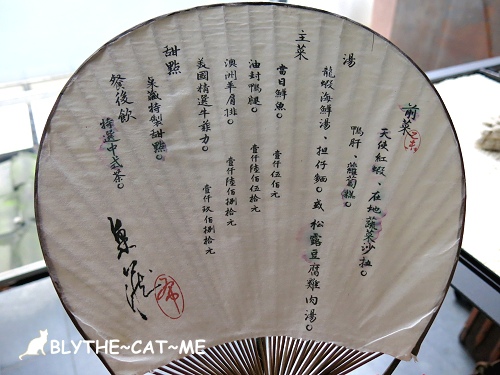 前菜
天使紅蝦、在地蔬菜沙拉
鴨肝、蘿蔔糕。
湯
龍蝦海鮮湯、担仔麵。或 松露豆腐雞肉湯。
主菜
當日鮮魚。 壹仟伍佰元
油封鴨腿。 壹仟陸佰伍拾元
澳洲羊肩排。 壹仟陸佰捌拾元
美國精選牛菲力。 壹仟玖佰捌拾元
甜點
特製甜點。
餐後飲
特選中式茶。
BLYTHE~CAT~ME